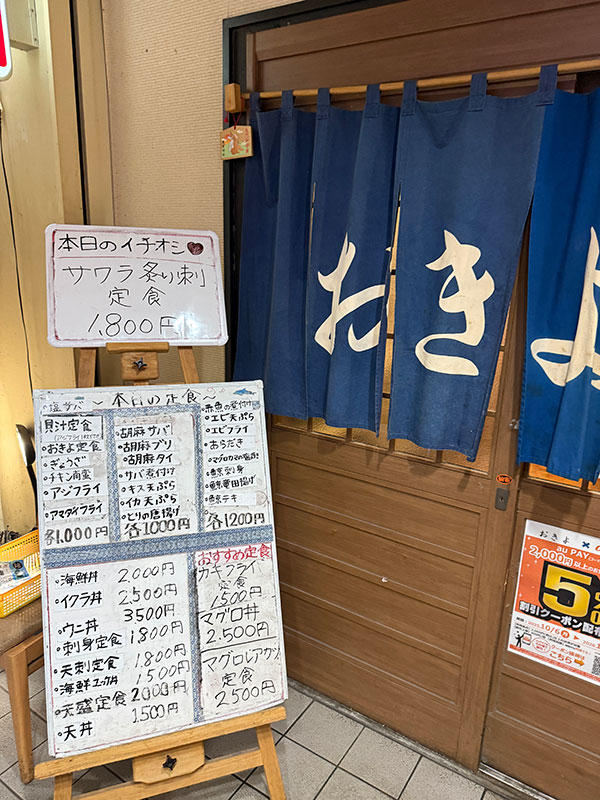 おきよ
本日のイチオシ
サワラ炙り刺
定食
1,800円
〜本日の定食〜
塩サバ
貝汁定食
・おきよ定食
・ぎょうざ
・チキン南蛮
・アジフライ
・アマダイフライ
各1.000円
・胡麻サバ
・胡麻ブリ
・胡麻タイ
・サバ煮付け
・キス天ぷら
・イカ天ぷら
・とりの唐揚げ
各1000円
・赤魚の煮付け
・エビ天ぷら
・エビフライ
・あらだき
・鯨刺身
・鯨竜田揚げ
・鯨テキ
各1200円
・海鮮丼 2.000円
・イクラ丼 2500円
・ウニ丼 3500円
・刺身定食 1800円
・天刺定食 1.800円
・海鮮ユッケ丼 1500円
・天盛定食 2000円
・天丼 1.500円
おすすめ定食
カキフライ
定食
1,500円
マグロ丼
2.500円
マグロレアカツ
定食
2500円
おきよ ×
au PAY
2,000円以上のお
5%
割引クーポン配
10/6
こちら